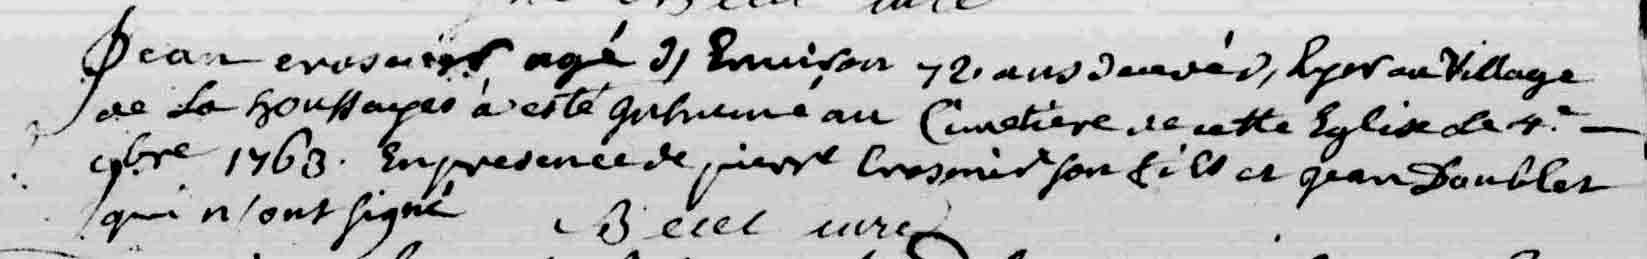 Jean crosnier agé d'Environ 72. ans decedé d'hyer au Village
de La houssayes a esté Inhumé au Cimetiere de cette Eglise Le 4.e —
9bre 1763. En presence de pierre Crosnier son fils et jean Doublet
qui n'ont signé
curé